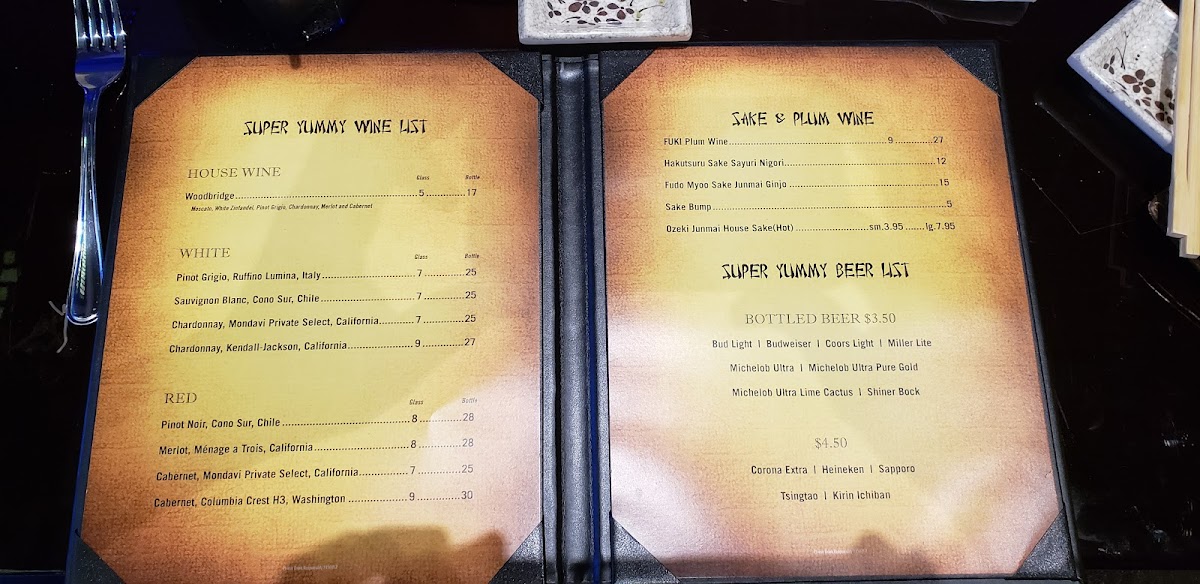 SUPER YUMMY WINE LIST
HOUSE WINE Glass Bottle
Woodbridge 5 17
Moscato, White Zinfandel, Pinot Grigio, Chardonnay, Merlot and Cabernet
WHITE Glass Bottle
Pinot Grigio, Ruffino Lumina, Italy 7 25
Sauvignon Blanc, Cono Sur, Chile 7 25
Chardonnay, Mondavi Private Select, California 7 25
Chardonnay, Kendall-Jackson, California 9 27
RED Glass Bottle
Pinot Noir, Cono Sur, Chile 8 28
Merlot, Ménage a Trois, California 8 28
Cabernet, Mondavi Private Select, California 7 25
Cabernet, Columbia Crest H3, Washington 9 30
SAKE & PLUM WINE
FUKI Plum Wine 9 27
Hakutsuru Sake Sayuri Nigori 12
Fudo Myoo Sake Junmai Ginjo 15
Sake Bump 5
Ozeki Junmai House Sake(Hot) sm.3.95 lg.7.95
SUPER YUMMY BEER LIST
BOTTLED BEER $3.50
Bud Light | Budweiser | Coors Light | Miller Lite
Michelob Ultra | Michelob Ultra Pure Gold
Michelob Ultra Lime Cactus | Shiner Bock
$4.50
Corona Extra | Heineken | Sapporo
Tsingtao | Kirin Ichiban